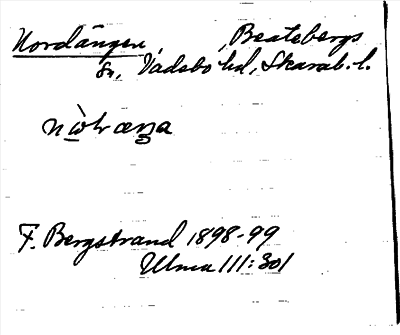 Nordängen, Beatebergs
sn, Vadsbo hd, Skarab. l.
F. Bergstrand 1898-99
Ulma 111:301